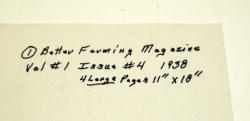 ① Better Farming Magazine
Vol #1 Issue #4 1938
4 Large Pages 11" x 18"